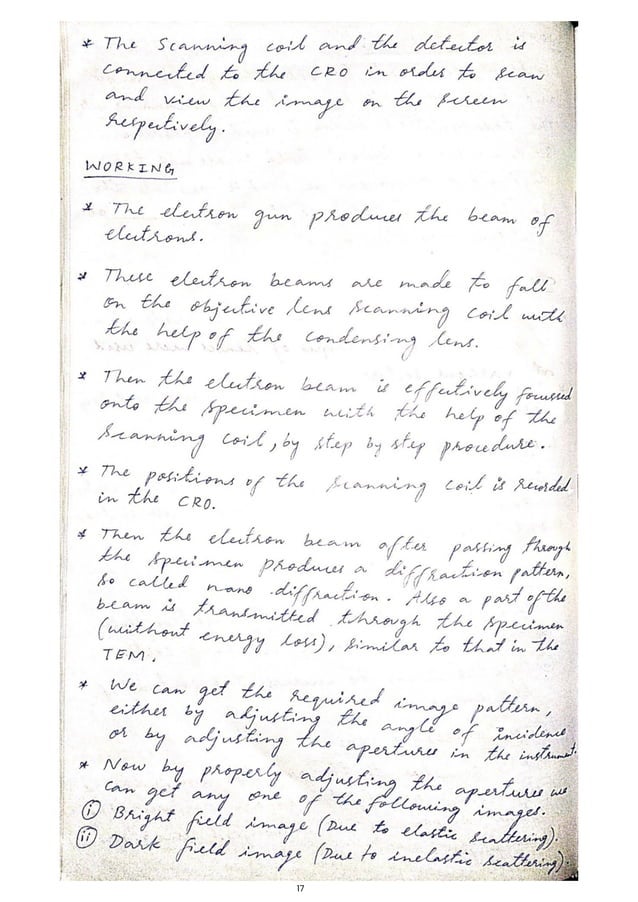 * The Scanning coil and the detector is
connected to the CRO in order to scan
and view the image on the screen
respectively.
WORKING
* The electron gun produces the beam of
electrons.
* These electron beams are made to fall
on the objective lens scanning coil with
the help of the condensing lens.
* Then the electron beam is effectively focussed
onto the specimen with the help of the
scanning coil, by step by step procedure.
* The positions of the scanning coil is recorded
in the CRO.
* Then the electron beam after passing through
the specimen produces a diffraction pattern,
so called nano diffraction. Also a part of the
beam is transmitted through the specimen
(without energy loss), similar to that in the
TEM.
* We can get the required image pattern,
either by adjusting the angle of incidence
or by adjusting the apertures in the instrument.
* Now by properly adjusting the apertures we
can get any one of the following images.
(i) Bright field image (Due to elastic scattering).
(ii) Dark field image (Due to inelastic scattering).
17